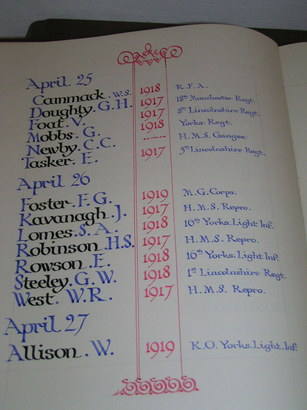 April 25
Cammack. W.S. 1918 R.F.A.
Doughty. G.H. 1917 18th Manchester Regt.
Foat. V. 1917 Lincolnshire Regt.
Mobbs. G. 1918 Yorks. Regt.
Newby. C.C. ------ H.M.S. Ganges.
Tasker. E. 1917 5th Lincolnshire Regt.
April 26
Foster. F.G. 1919 M.G.Corps.
Kavanagh. J. 1917 H.M.S. Repro.
Lomes. S.A. 1918 10th Yorks. Light Inf.
Robinson. H.S. 1917 H.M.S. Repro.
Rowson. E. 1918 10th Yorks. Light Inf.
Steeley. G.W. 1918 1st Lincolnshire Regt.
West. W.R. 1917 H.M.S. Repro.
April 27
Allison. W. 1919 K.O. Yorks. Light. Inf.